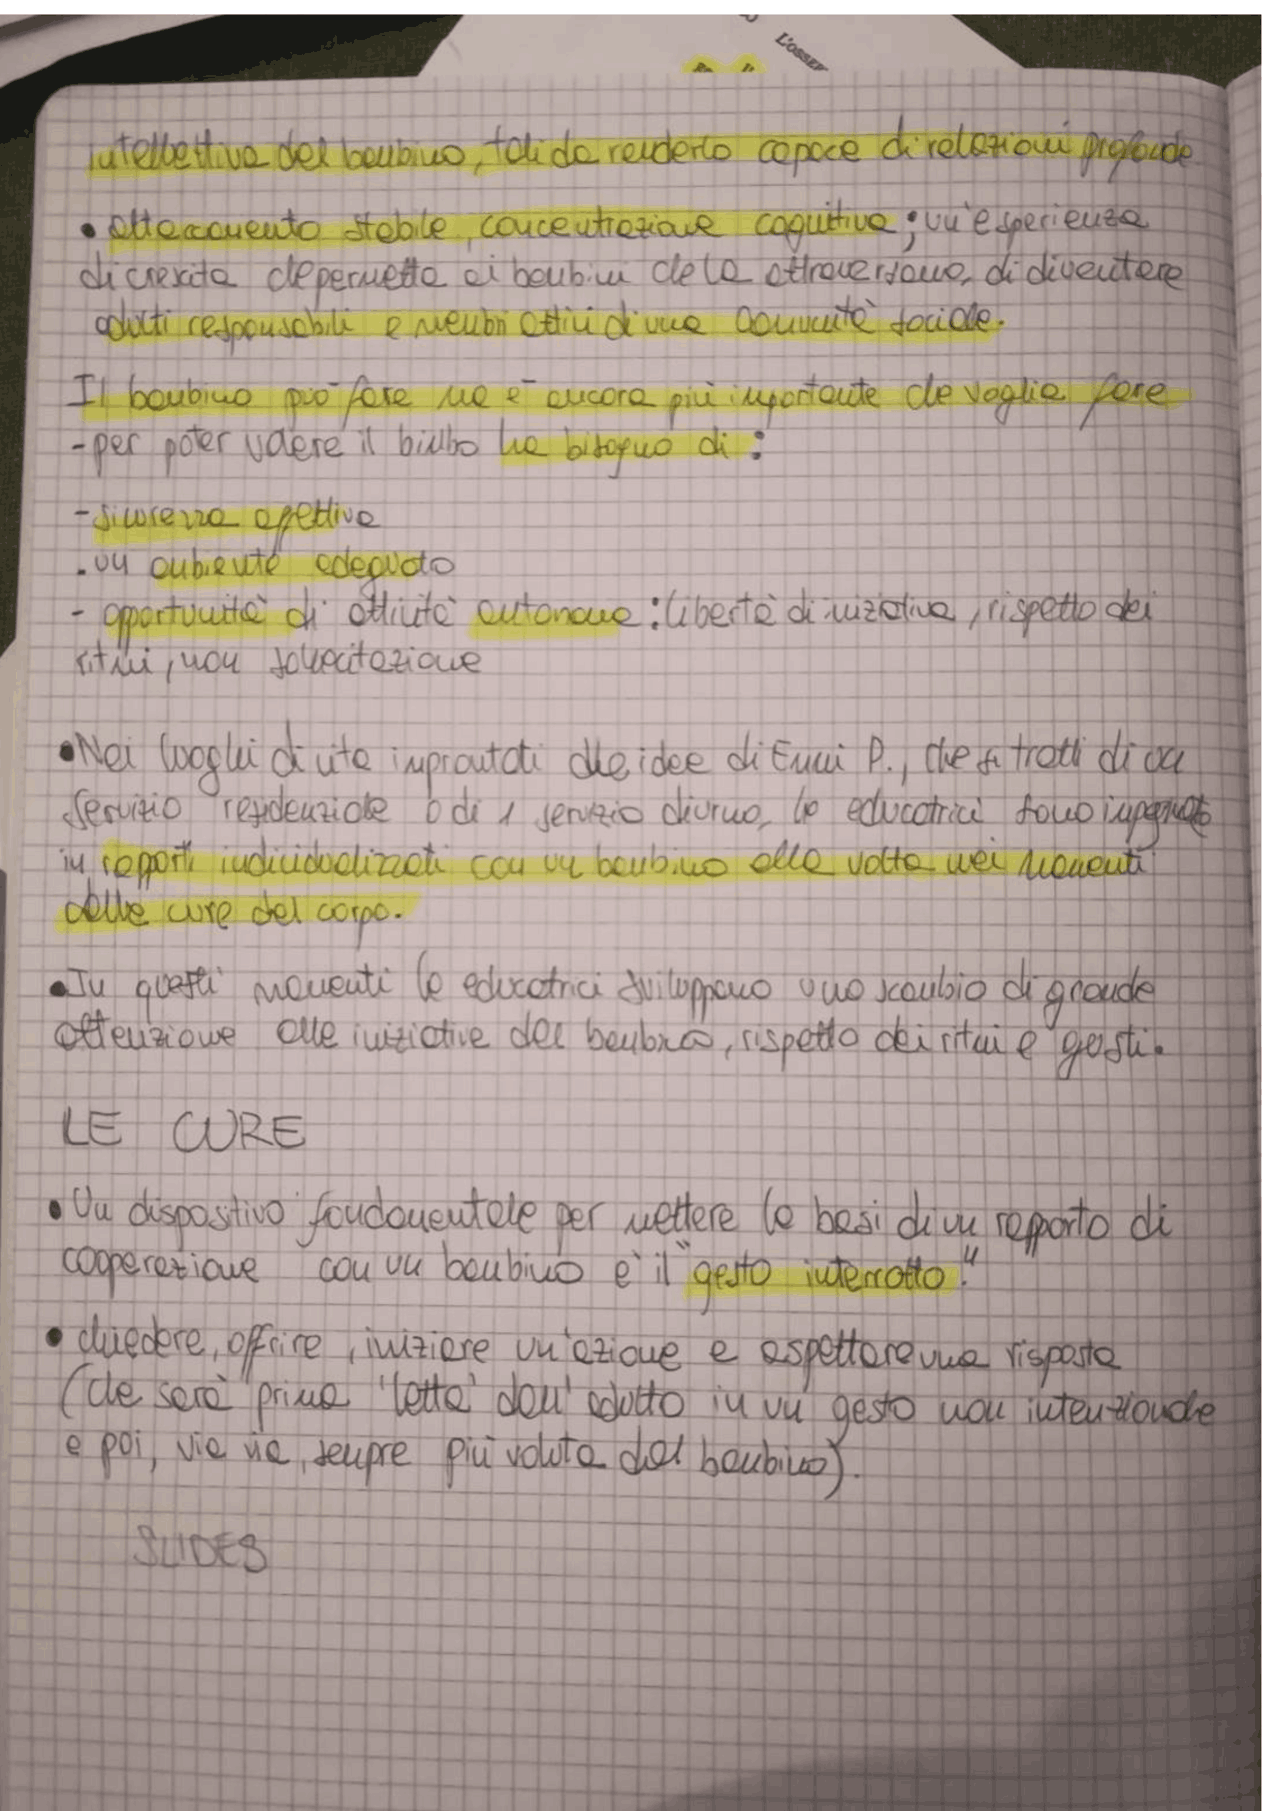 L'OSSER
intellettiva del bambino, tali da renderlo capace di relazioni profonde
• attaccamento stabile, concentrazione cognitiva; un'esperienza
di crescita che permetta ai bambini che la attraversano, di diventare
adulti responsabili e membri attivi di una comunità sociale.
Il bambino può fare ma è ancora più importante che voglia fare
- per poter volere il bimbo ha bisogno di:
- sicurezza affettiva
. un ambiente adeguato
- opportunità di attività autonome: libertà di iniziativa, rispetto dei
ritmi, non sollecitazione
• Nei luoghi di vita improntati alle idee di Emmi P., che si tratti di un
servizio residenziale o di 1 servizio diurno, le educatrici sono impegnate
in rapporti individualizzati con un bambino alla volta nei momenti
delle cure del corpo.
• In questi momenti le educatrici sviluppano uno scambio di grande
attenzione alle iniziative del bambino, rispetto dei ritmi e gesti.
LE CURE
• Un dispositivo fondamentale per mettere le basi di un rapporto di
cooperazione con un bambino è il "gesto interrotto".
• chiedere, offrire, iniziare un'azione e aspettare una risposta
(che sarà prima 'letta' dall'adulto in un gesto non intenzionale
e poi, via via, sempre più voluta dal bambino).
SLIDES